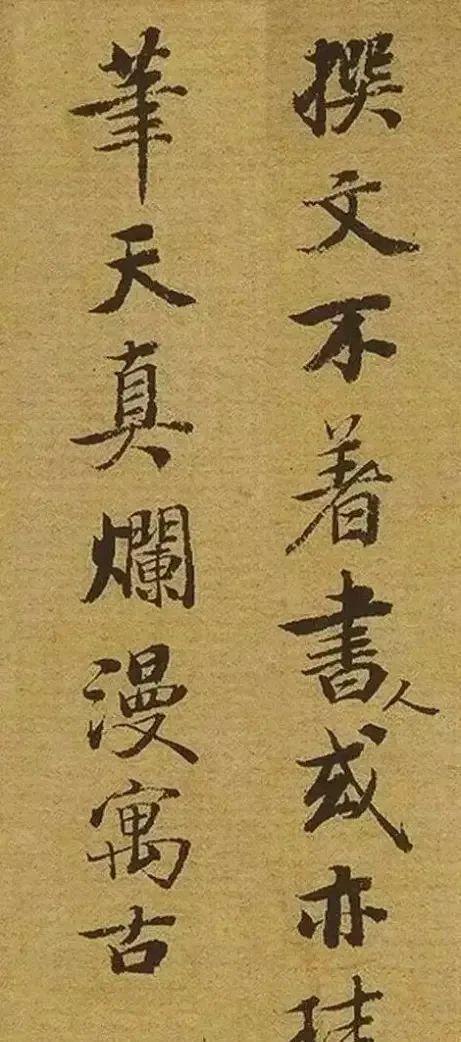 撰文不著書人或亦
筆天真爛漫寓古